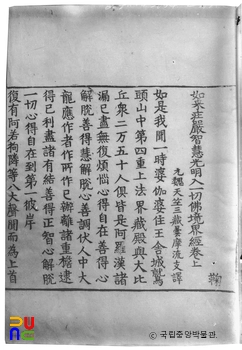 如來莊嚴智慧光明入一切佛境界經卷上
元魏天竺三藏曇摩流支譯
如是我聞一時婆伽婆住王舍城鷲
頭山中第四重上法界藏殿與大比
丘衆二万五千人俱皆是阿羅漢諸
漏已盡無復煩惱心得自在善得心
解脫善得慧解脫心善調伏人中大
龍應作者作所作已辦離諸重擔逮
得已利盡諸有結善得正智心解脫
一切心得自在到第一彼岸
復有阿若拘隣等八大聲聞而爲上首
국립중앙박물관